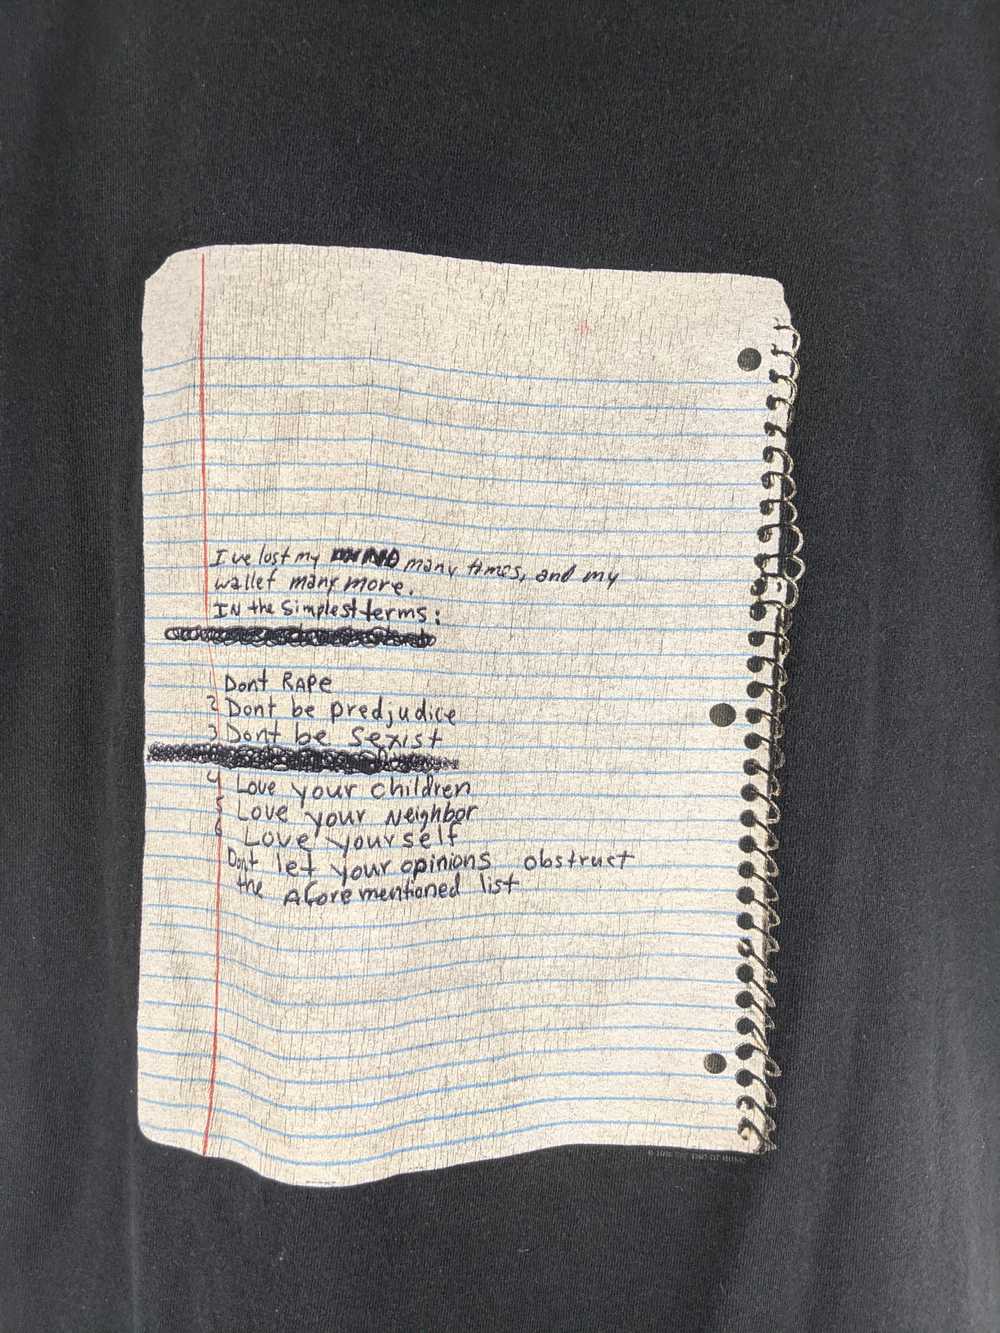 I've lost my MIND many times, and my
wallet many more.
IN the Simplest terms:
Dont RAPe
2 Dont be predjudice
3 Dont be Sexist
4 Love your children
5 Love your Neighbor
6 Love yourself
Dont let your opinions obstruct
the Aforementioned list